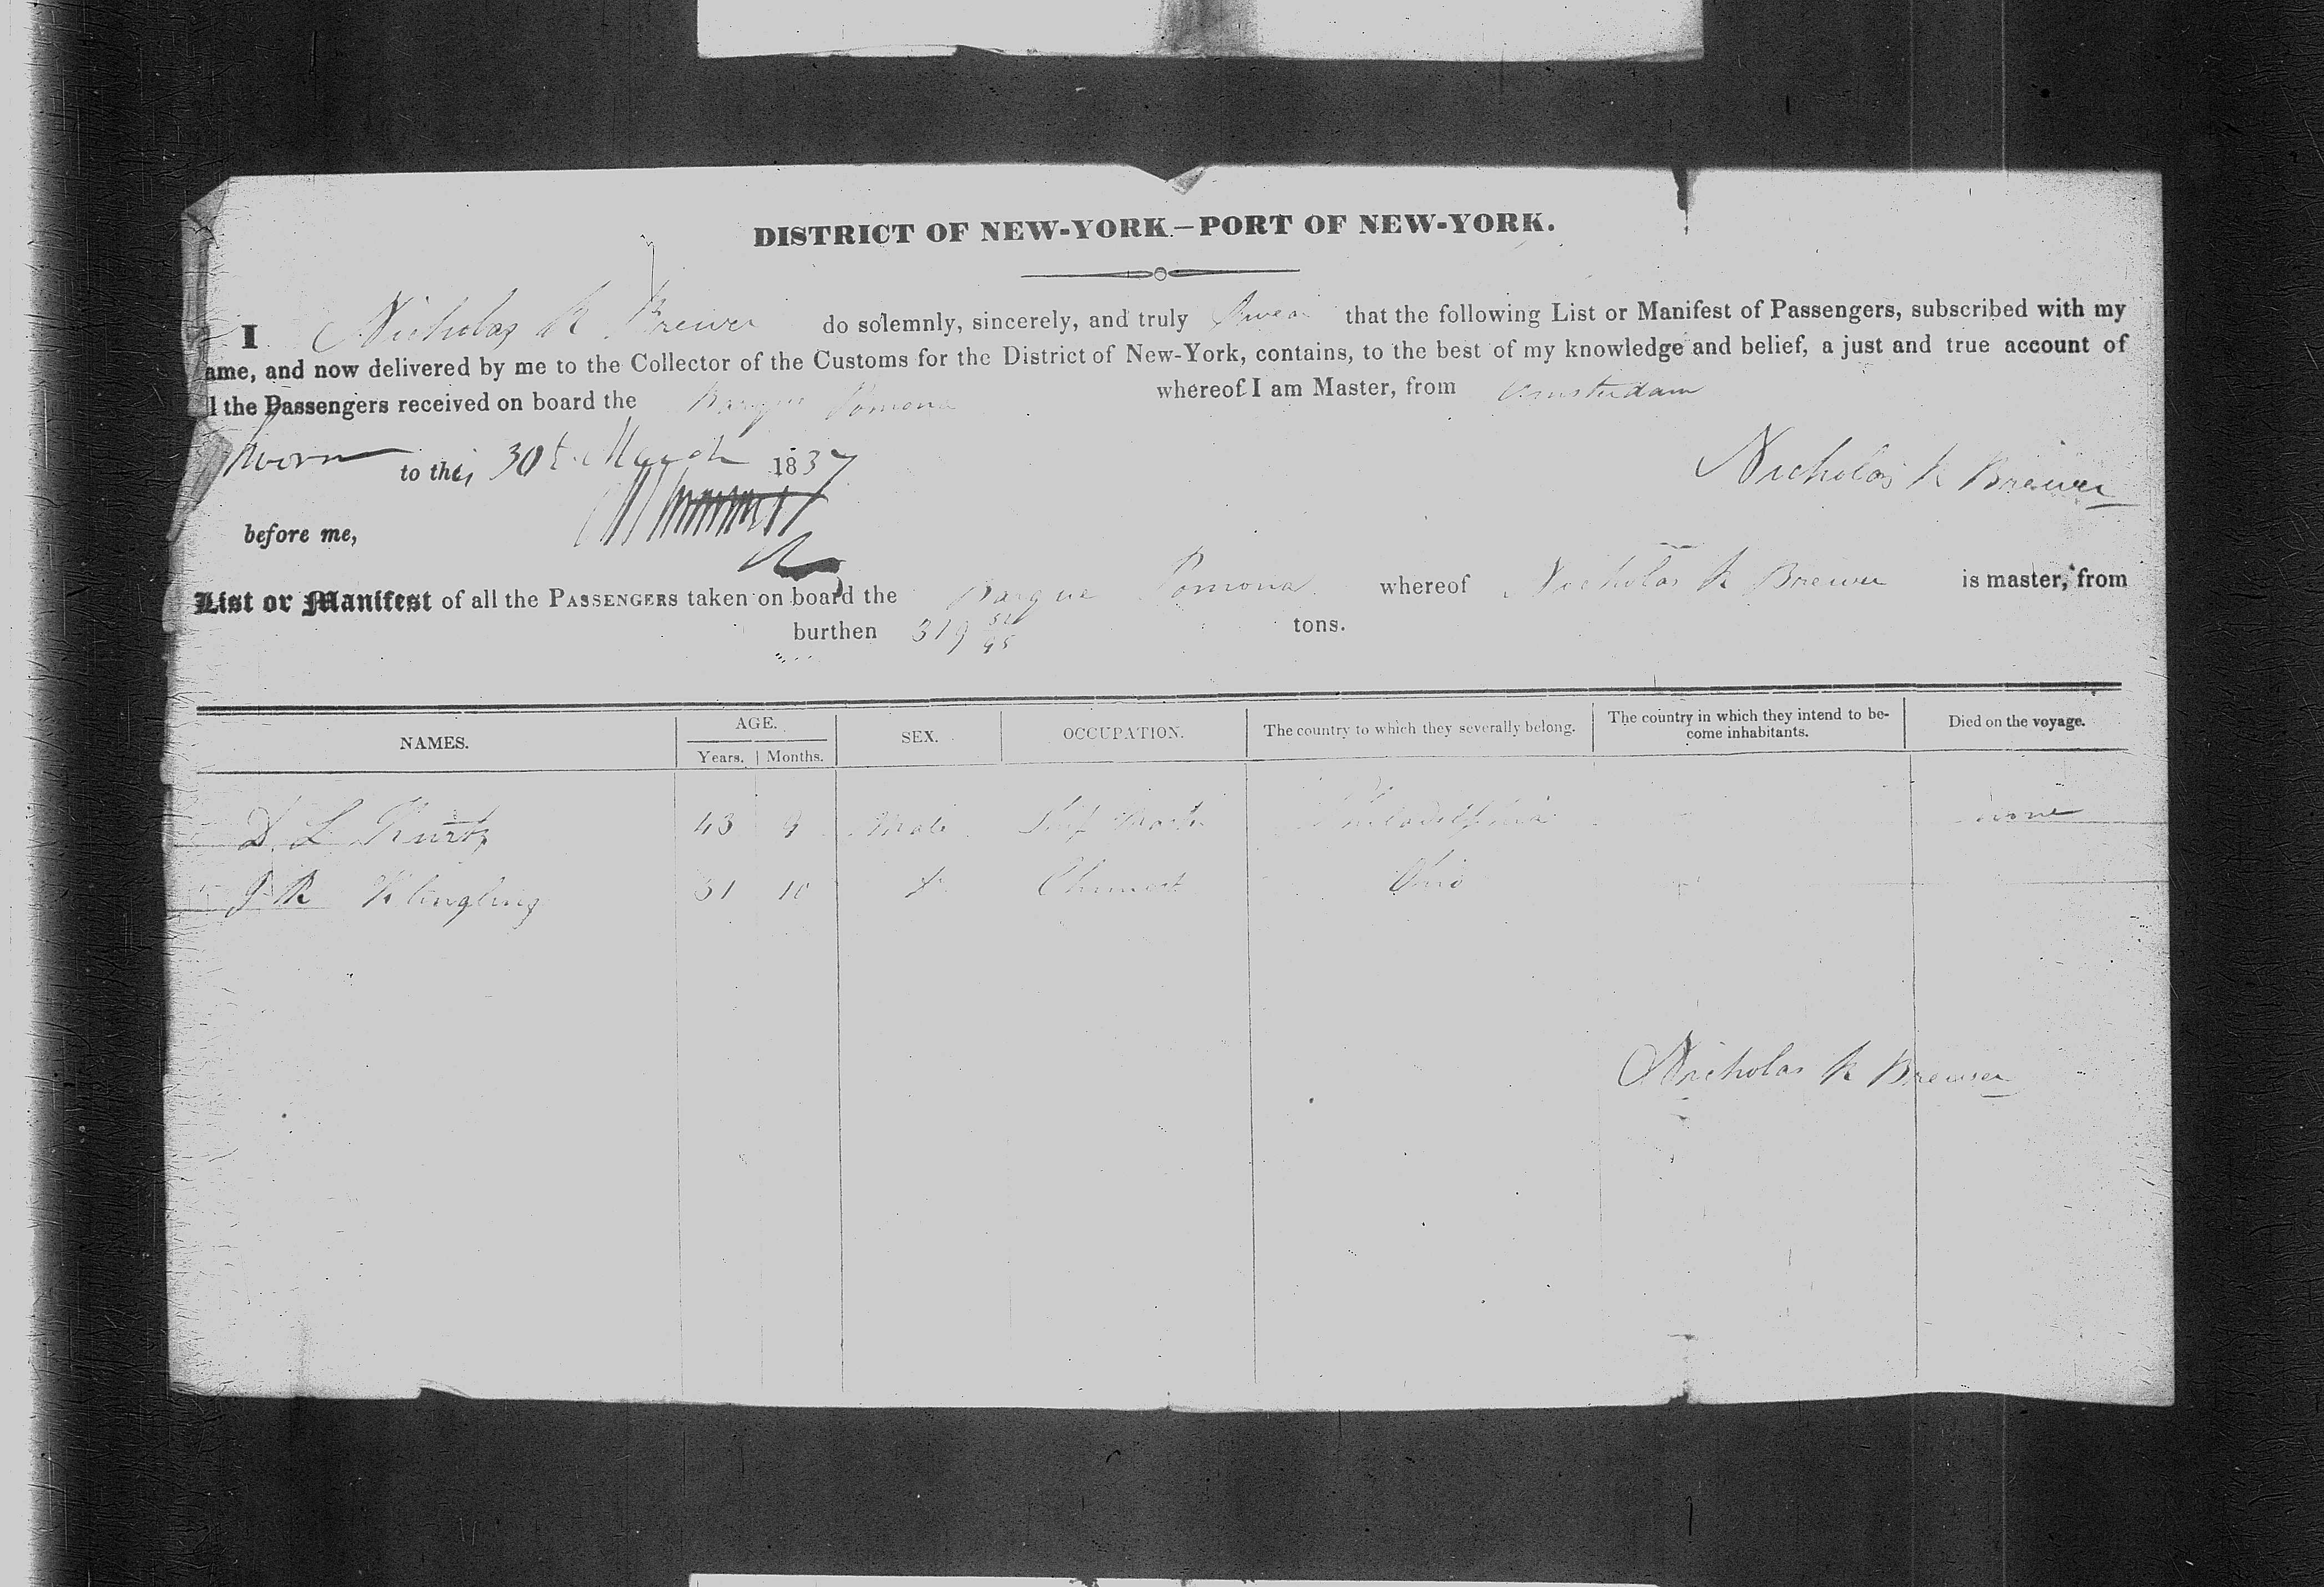 DISTRICT OF NEW-YORK—PORT OF NEW-YORK.
I Nicholas R Brewer do solemnly, sincerely, and truly Swear that the following List or Manifest of Passengers, subscribed with my
ame, and now delivered by me to the Collector of the Customs for the District of New-York, contains, to the best of my knowledge and belief, a just and true account of
l the Passengers received on board the Barque Pomona whereof I am Master, from Amsterdam
Sworn to this 30th March 1837
Nicholas R Brewer
before me,
List or Manifest of all the PASSENGERS taken on board the Barque Pomona whereof Nicholas R Brewer is master, from
burthen 319 tons.
NAMES. AGE. Years. Months. SEX. OCCUPATION. The country to which they severally belong. The country in which they intend to be-come inhabitants. Died on the voyage.
D. L Kurtz 43 9 Male Philadelphia none
J R Klingling 31 10 Ohio
Nicholas R Brewer